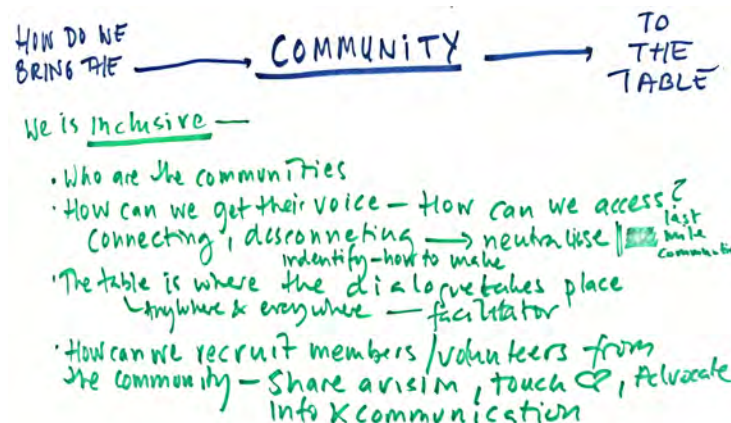 HOW DO WE
BRING THE
COMMUNITY
TO
THE
TABLE
We is inclusive —
• Who are the communities
• How can we get their voice — How can we access?
connecting, desconneting → neutralise
last
mile
indentify - how to make
• The table is where the dialogue takes place
Anywhere & everywhere — facilitator
• How can we recruit members / volunteers from
the community — Share a visim, touch ♡, Advocate
Info & communication